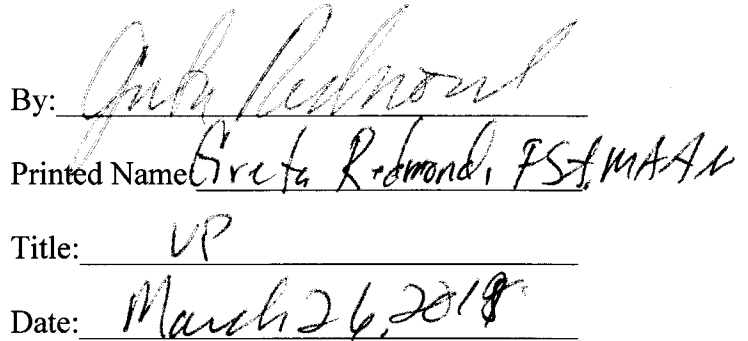 By: Greta Redmond
Printed Name Greta Redmond, FSA, MAAA
Title: VP
Date: March 26, 2018